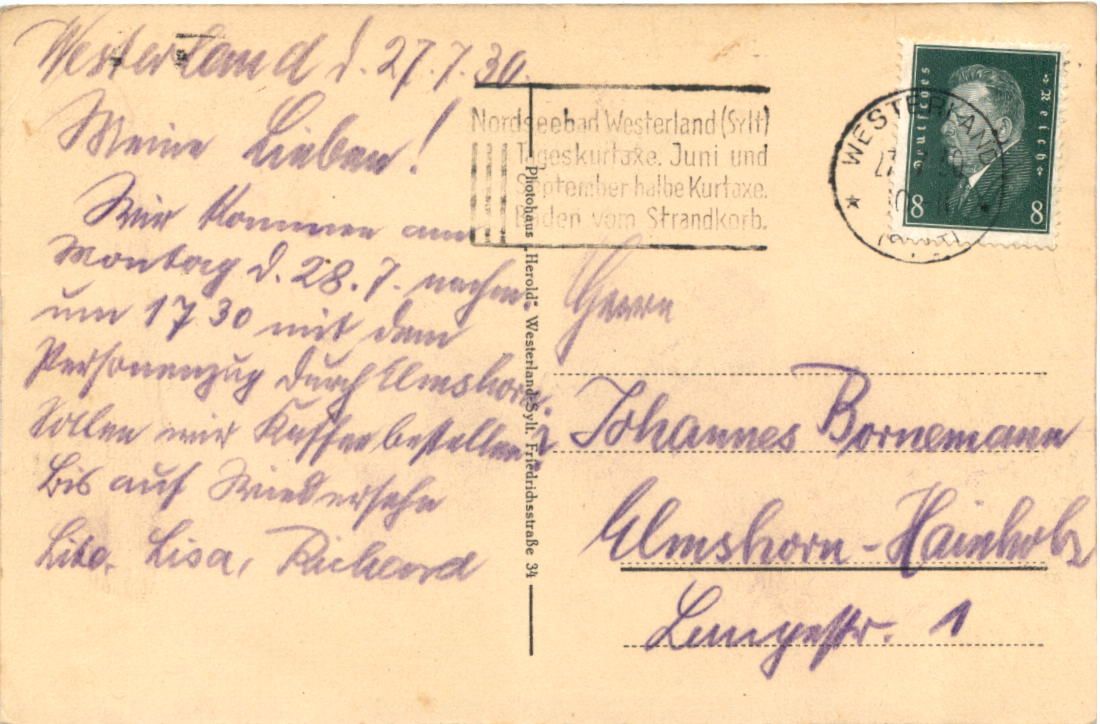 Westerland d. 27.7.30.
Meine Lieben!
Wir kommen am
Montag d. 28.7. nachm.
um 17 30 mit dem
Personenzug durch Elmshorn.
Sollen wir Kaffee bestellen?
Bis auf Wiedersehn
Lisa, Richard
Nordseebad Westerland (Sylt)
Tageskurtaxe. Juni und
September halbe Kurtaxe.
Baden vom Strandkorb.
Photohaus „Herold“ Westerland-Sylt. Friedrichsstraße 34
WESTERLAND
Deutsches Reich
8 8
Herrn
Johannes Bornemann
Elmshorn-Hainholz
Langestr. 1